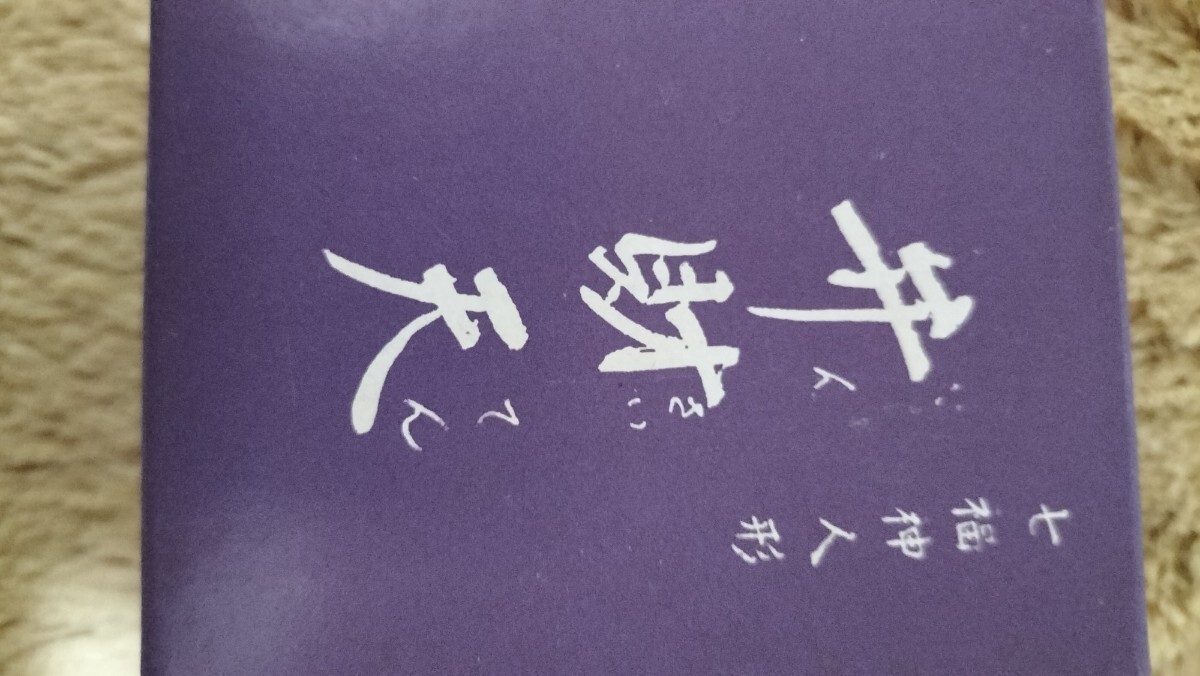 七福神人形
弁財天
ざいてん